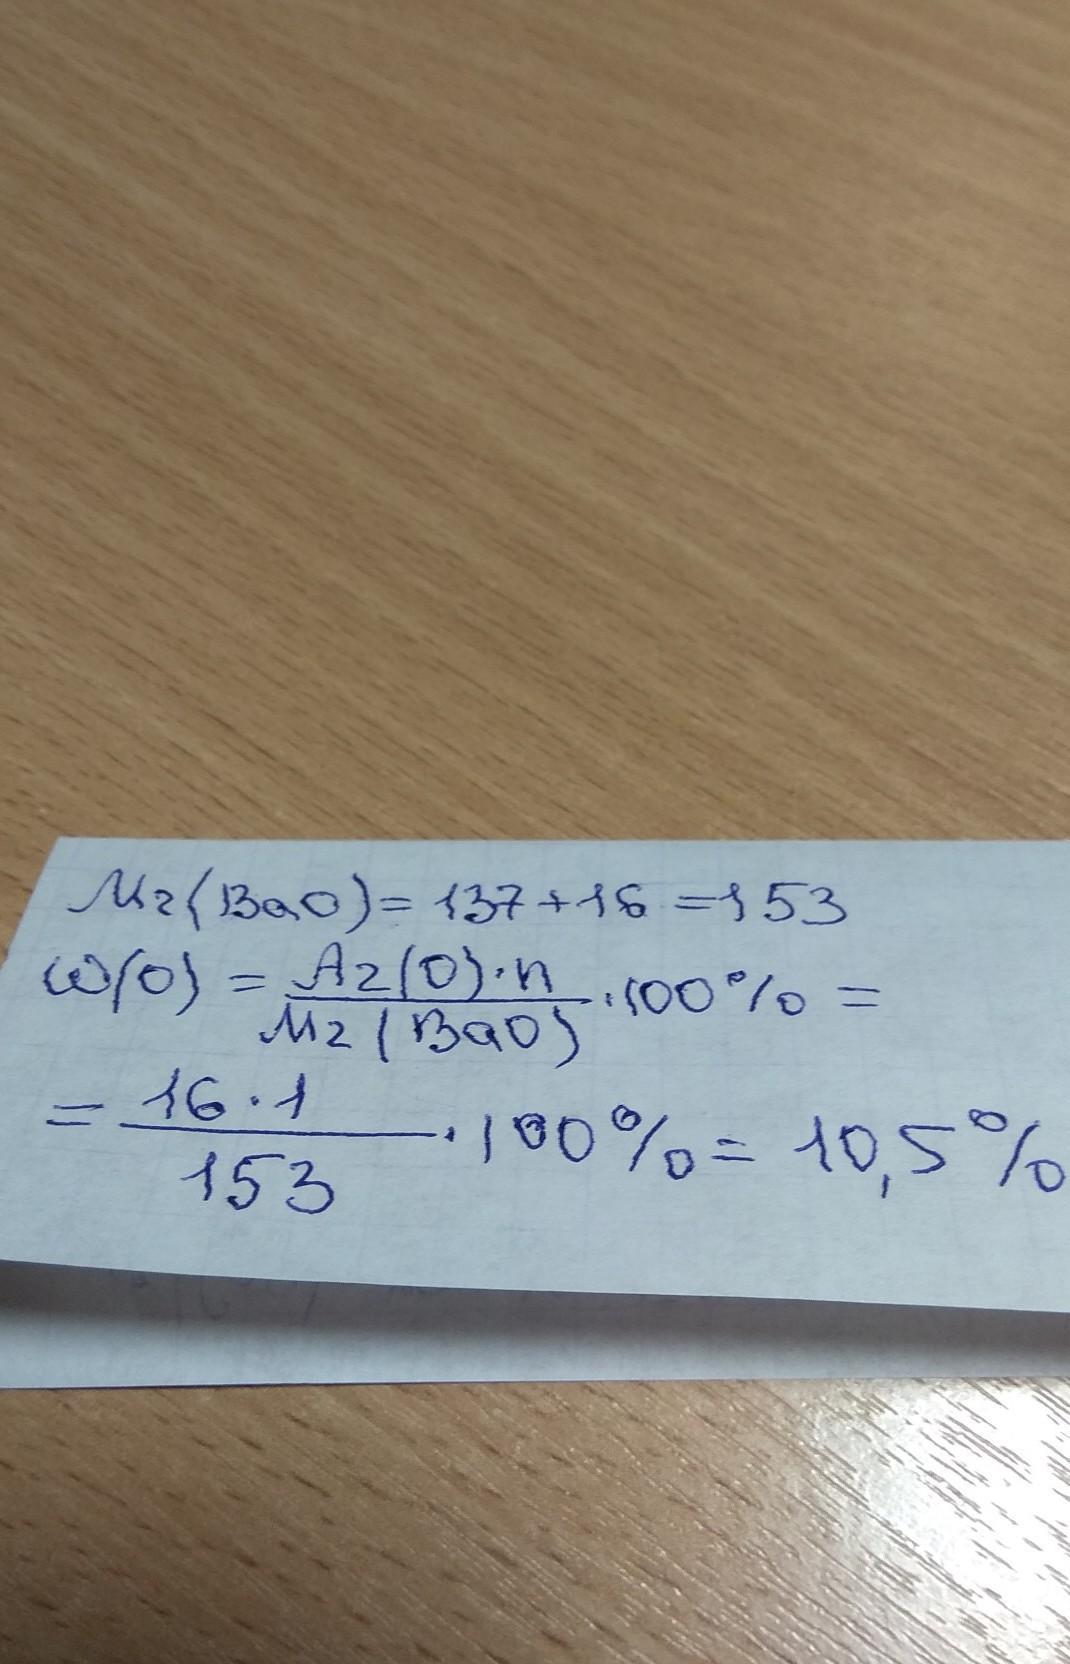 Mr(BaO) = 137+16 =153
ω(O) = Ar(O)·n / Mr(BaO) ·100% =
= 16·1 / 153 ·100% = 10,5%